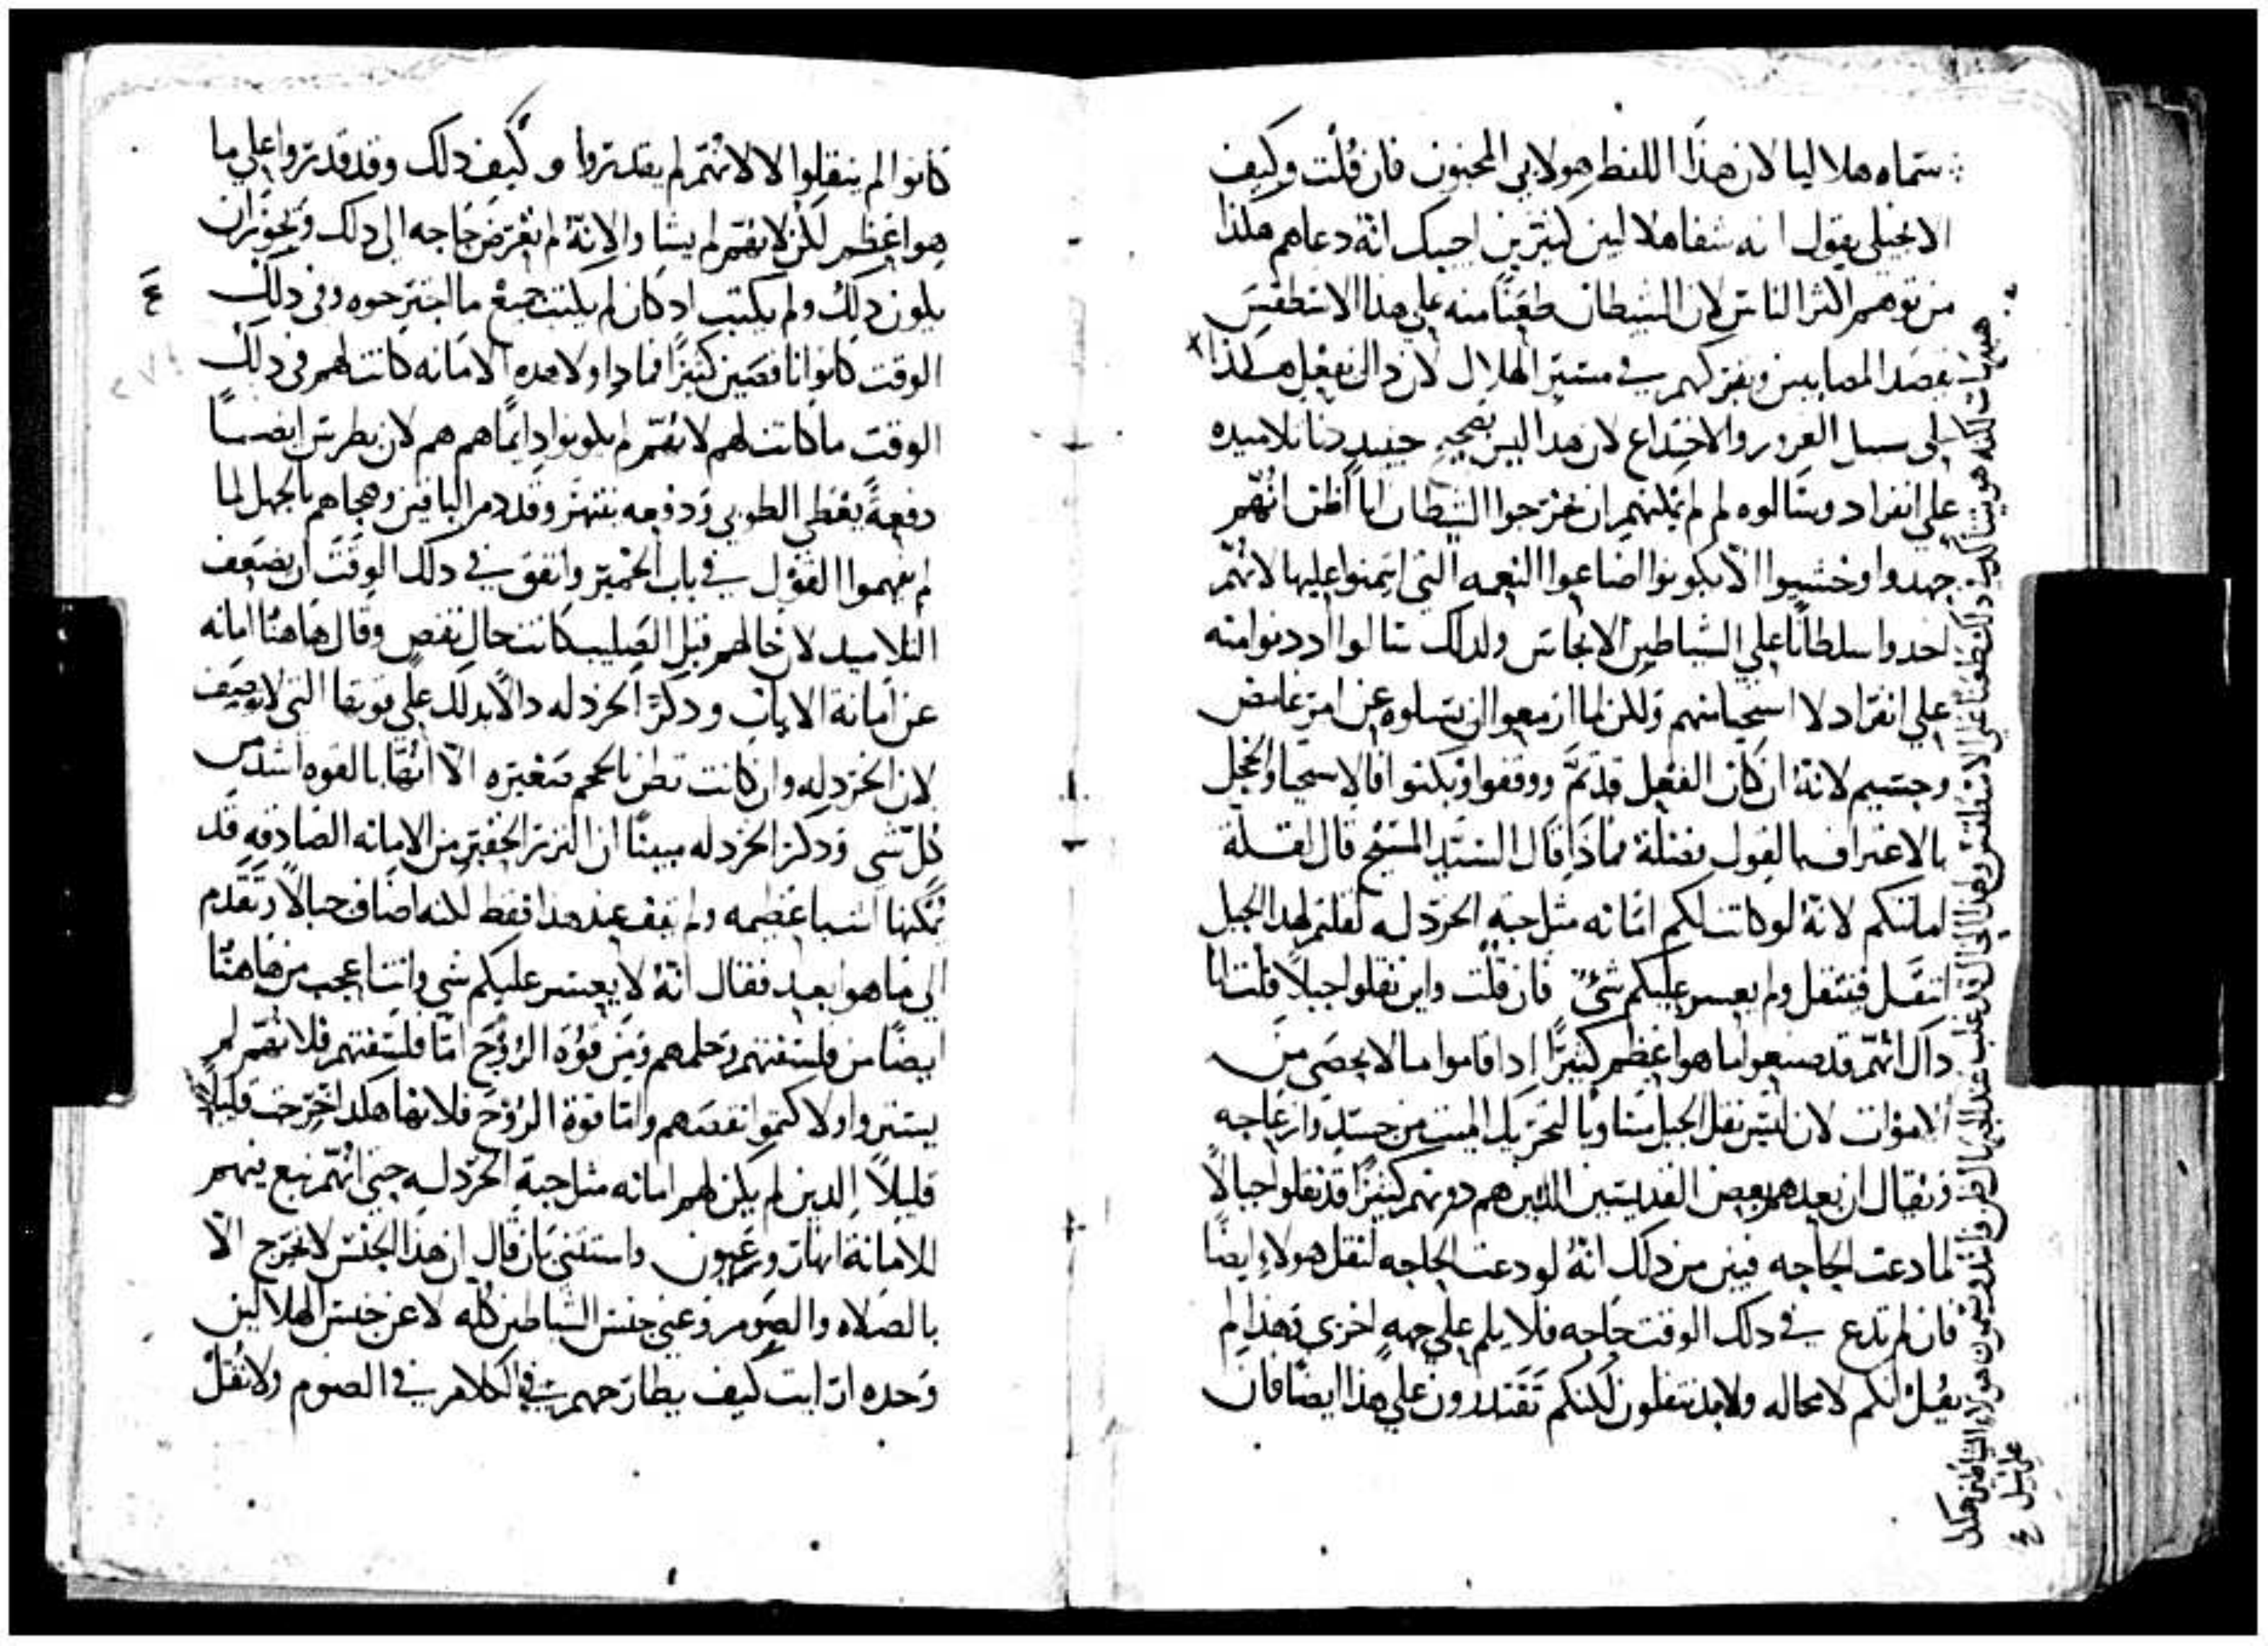 سماه هلاليا لان هذا اللفظ هو لابي المجنون فان قلت وكيف
الانجيلي يقول انه شفا هلاليين كثيرين اجيبك انه دعاهم هكذا
من توهم اكثر الناس لان الشيطان طعنا منه على هذا الاسطقس
يقصد المصابين ويفركهم في مسير الهلال لان ذاك يفعل هكذا
على سبيل الغرور والاختداع لان هذا ليس بصحيح حينيد دنا تلاميده
على انفراد وسالوه لم لم يمكنهم ان يخرجوا الشيطان انا اظن انهم
جهدوا وخشيوا الا يكونوا اضاعوا النعمه التي ايتمنوا عليها لانهم
اخدوا سلطانا على الشياطين الانجاس ولدلك سالوا اد دنوا منه
على انفراد لا استحيا منهم ولكن لما ازمعوا ان يسلوه عن امر غامض
وجسيم لانه ان كان الفعل قد تم ووقفوا وبكتوا فالاستحيا والخجل
بالاعتراف بالقول فضلة فماذا قال السيد المسيح قال لقلة
امانتكم لانه لو كانت لكم امانه مثل حبة الخردله لقلتم لهدا الجبل
انتقل فينتقل ولم يعسر عليكم شي فان قلت واين نقلوا جبلا قلت انا
داك انهم قد صنعوا ما هو اعظم كثيرا اد اقاموا ما لا يحصى من
الاموات لان ليس نقل الجبل مساويا لتحريك الميت من جسد وازعاجه
ويقال ان بعدهم بعض القديسين الدين هم دونهم كثيرا قد نقلوا جبالا
لما دعت الحاجه فبين من دلك انه لو دعت الحاجه لنقل هولاء ايضا
فان لم تدع في دلك الوقت حاجه فلا يلم على جهه اخرى وهذا لم
يقل انكم لا محاله ولابد تنقلون لكنكم تقتدرون على هذا ايضا فان
هيهات لكنه هو يشا لدن دلك طعنا على الاسطقس وهدا الحال قد غلب عند الجهال الظن فاندر يسمون هولاء الشياطين هكدا
على سبيل
كانوا لم ينقلوا لا لانهم لم يقدروا وكيف دلك وقد قدروا على ما
هو اعظم لكن لانهم لم يشا والانه لم تعرض حاجه الى دلك ويجوز ان
يكون دلك ولم يكتب اد كان لم يكتب جميع ما اجترحوه وفي دلك
الوقت كانوا ناقصين كثيرا فمادا ولا هده الامانه كانت لهم في دلك
الوقت ما كانت لهم لانهم لم يكونوا دايما هم هم لان بطرس ايضا
دفعة يعطى الطوبى ودفعه ينتهر وقد دمر الباقين وهجاهم بالجهل لما
لم يفهموا القول في باب الخمير واتفق في دلك الوقت ان يضعف
التلاميد لان حالهم قبل الصليب كانت حال نقص وقال هاهنا امانه
عن امانة الايات ودكر الخردله دالا بدلك على قوتها التي لا توصف
لان الخردله وان كانت تظن بالحجم صغيره الا انها بالقوه اشد من
كل شي ودكر الخردله مبينا ان النزر الحقير من الامانه الصادقه قد
تمكنها اشيا عظيمه ولم يقف عند هدا فقط لكنه اضاف جبالا وتقدم
الى ما هو ابعد فقال انه لا يعسر عليكم شي وانت اعجب من هاهنا
ايضا من فلسفتهم وحلمهم ومن قوة الروح اما فلسفتهم فلانهم لم
يستروا ولا كتموا نقصهم واما قوة الروح فلانها هكدا اخرجت قليلا
قليلا الدين لم يكن لهم امانه مثل حبة الخردله حتى انهم نبع منهم
للامانة انهار وعيون واستثنى بان قال ان هذا الجنس لا يخرج الا
بالصلاه والصوم وعنى جنس الشياطين كله لا عن جنس الهلاليين
وحده ارايت كيف يطارحهم في الكلام في الصوم ولا تقل